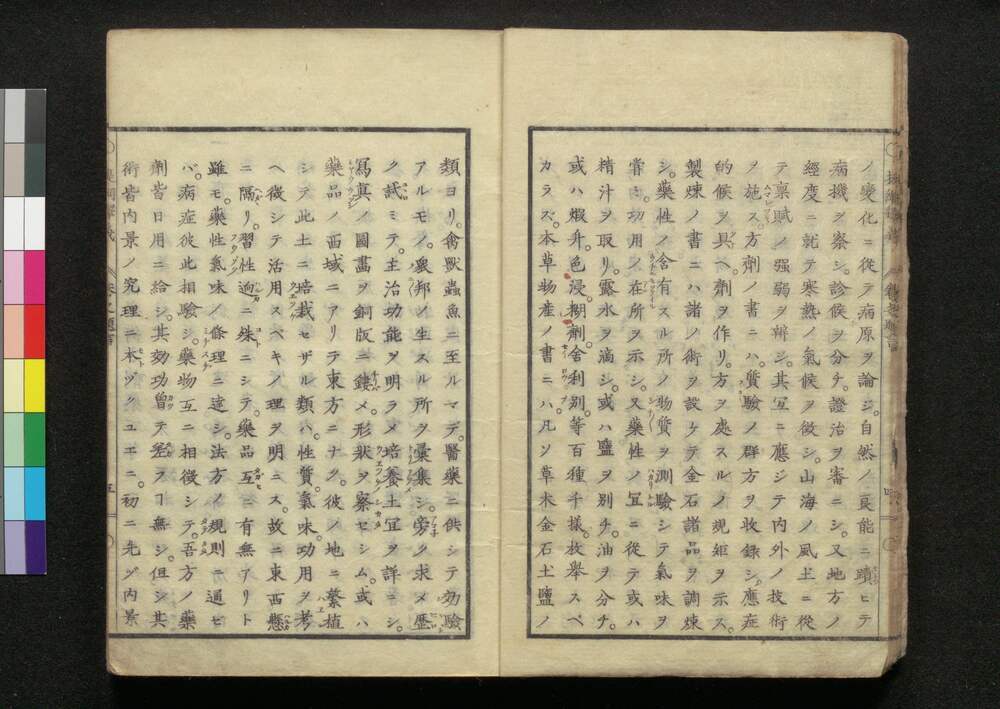 ノ變化ニ從テ病原ヲ論ジ。自然ノ良能ニ蹟ヒテ
病機ヲ察シ。診候ヲ分チ。證治ヲ審ニシ。又地方ノ
經度ニ就テ寒熱ノ氣候ヲ徴シ。山海ノ風土ニ從
テ稟賦ノ强弱ヲ辨シ。其宜ニ應シテ内外ノ技術
ヲ施ス。方劑ノ書ニハ。質驗ノ群方ヲ收録シ。應症
的候ヲ具ヘ。劑ヲ作リ。方ヲ處スルノ規矩ヲ示ス。
製煉ノ書ニハ諸ノ術ヲ設ケテ金石諸品ヲ調煉
シ。藥性ノ含有スル所ノ物質ヲ測驗シテ氣味ヲ
嘗ミ。功用ノ在所ヲ示シ。又藥性ノ宜ニ從テ或ハ
精汁ヲ取リ。露水ヲ滴シ。或ハ鹽ヲ別チ。油ヲ分チ。
或ハ煆升色浸。糊劑。舍利別。等百種千様。枚舉スベ
カラズ。本草物産ノ書ニハ。凡ソ草木金石土鹽ノ
類ヨリ。禽獸蟲魚ニ至ルマデ。醫藥ニ供シテ効驗
アルモノ。衆邦ノ生スル所ヲ彙集シ。旁ク求メ歷
ク試ミテ。主治功能ヲ明ラメ培養土宜ヲ詳ニシ。
寫眞ノ圖畫ヲ銅版ニ鏤メ形狀ヲ察セシム。或ハ
藥品ノ西域ニアリテ東方ニナク。彼ノ地ニ蕃植
シテ此土ニ培栽セザル類ハ。性質。氣味。功用ヲ考
ヘ徴シテ活用スベキノ理ヲ明ニス。故ニ東西懸
ニ隔リ。習性逈ニ殊ニシテ。藥品互ニ有無アリト
雖モ。藥性氣味ノ條理ニ達シ。法方ノ規則ニ通ゼ
バ。病症彼此相驗シ。藥物互ニ相徴シテ。吾方ノ藥
劑皆日用ニ給シ。其効功曾テ差ヲ𪜈無シ。但シ其
術皆内景ノ究理ニ本ヅクユエニ。初ニ先ヅ内景